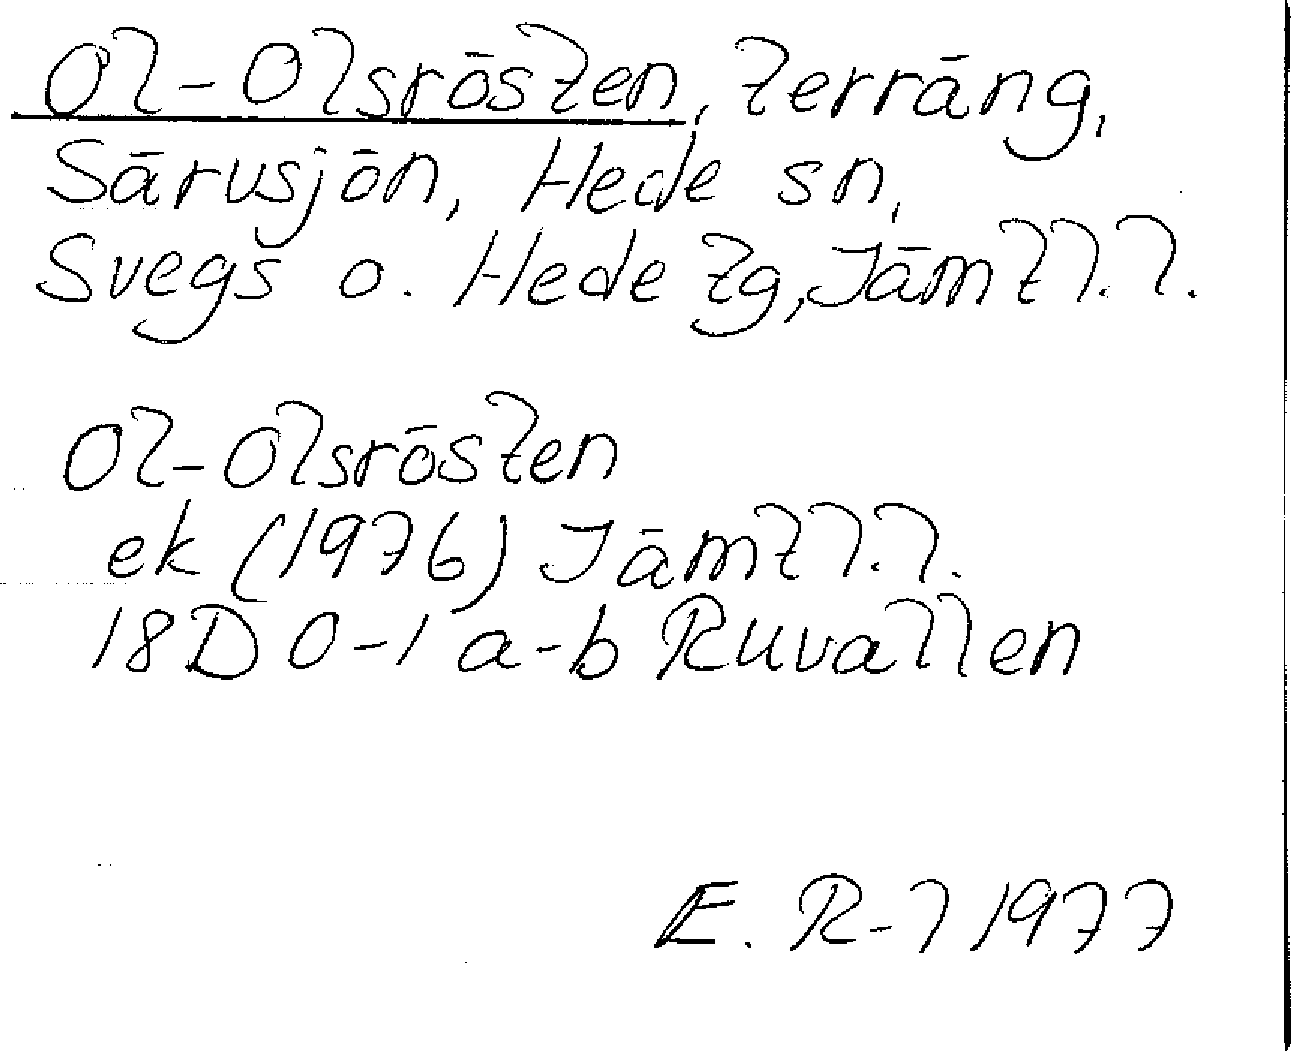 Ol-Olsrösten, terräng,
Särvsjön, Hede sn,
Svegs o. Hede tg, Jämtl. l.
Ol-Olsrösten
ek (1976) Jämtl. l.
18D 0-1 a-b Ruvallen
E. R-l 1977